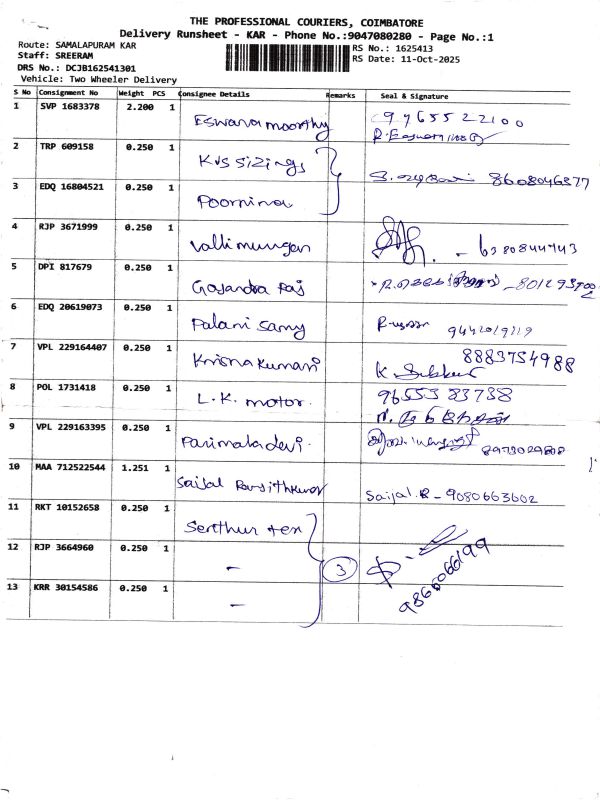 THE PROFESSIONAL COURIERS, COIMBATORE
Delivery Runsheet - KAR - Phone No.:9047080280 - Page No.:1
Route: SAMALAPURAM KAR
Staff: SREERAM
DRS No.: DCJB162541301
Vehicle: Two Wheeler Delivery
RS No.: 1625413
RS Date: 11-Oct-2025
S No Consignment No Weight PCS Consignee Details Remarks Seal & Signature
1 SVP 1683378 2.200 1 Eswaramoorthy
2 TRP 609158 0.250 1 KVS sizings
3 EDQ 16804521 0.250 1 Poornima 8608046377
4 RJP 3671999 0.250 1 Vallimurugan - 6380844743
5 DPI 817679 0.250 1 Gajandra Raj
6 EDQ 20619073 0.250 1 Palani Samy
7 VPL 229164407 0.250 1 Krishnakumari 8883754988
8 POL 1731418 0.250 1 L.K. motor. 9655383738
9 VPL 229163395 0.250 1 Parimaladevi.
10 MAA 712522544 1.251 1 Saijal Ranjithkumar Saijal.R - 9080663602
11 RKT 10152658 0.250 1 Senthur tex
12 RJP 3664960 0.250 1 - 3
13 KRR 30154586 0.250 1 -